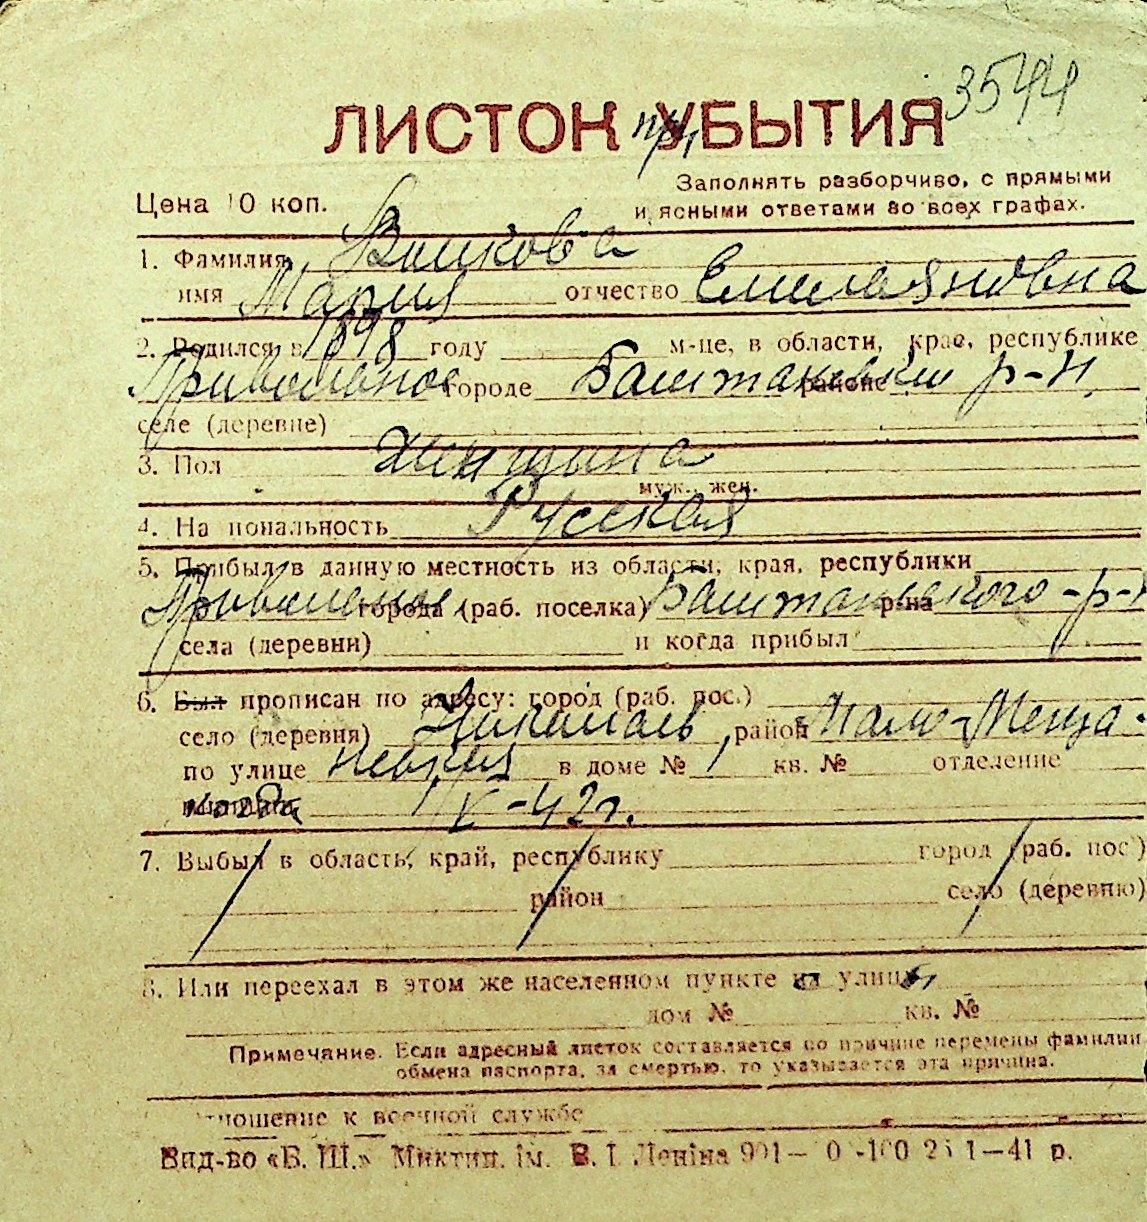 3544
ЛИСТОК при УБЫТИЯ
Заполнять разборчиво, с прямыми
Цена 10 коп. и ясными ответами во всех графах.
1. Фамилия Волкова
имя Мария отчество Емельяновна
2. Родился в 1898 году м-це, в области, крае, республике
Привольное городе Баштанский районе р-н
селе (деревне)
3. Пол женщина
муж., жен.
4. Национальность Русская
5. Прибыл в данную местность из области, края, республики
Привольное города (раб. поселка) Баштанского р-на р-н
села (деревни) и когда прибыл
6. Был прописан по адресу: город (раб. пос.)
село (деревня) район Мало-Меща-
по улице в доме № 1 кв. № отделение
милиции IX-42г.
7. Выбыл в область, край, республику город (раб. пос.)
район село (деревню)
8. Или переехал в этом же населенном пункте на улицу
дом № кв. №
Примечание. Если адресный листок составляется по причине перемены фамилии
обмена паспорта, за смертью, то указывается эта причина.
Отношение к военной службе
Вид-во «Б. Ш.» Миктип. ім. В. І. Леніна